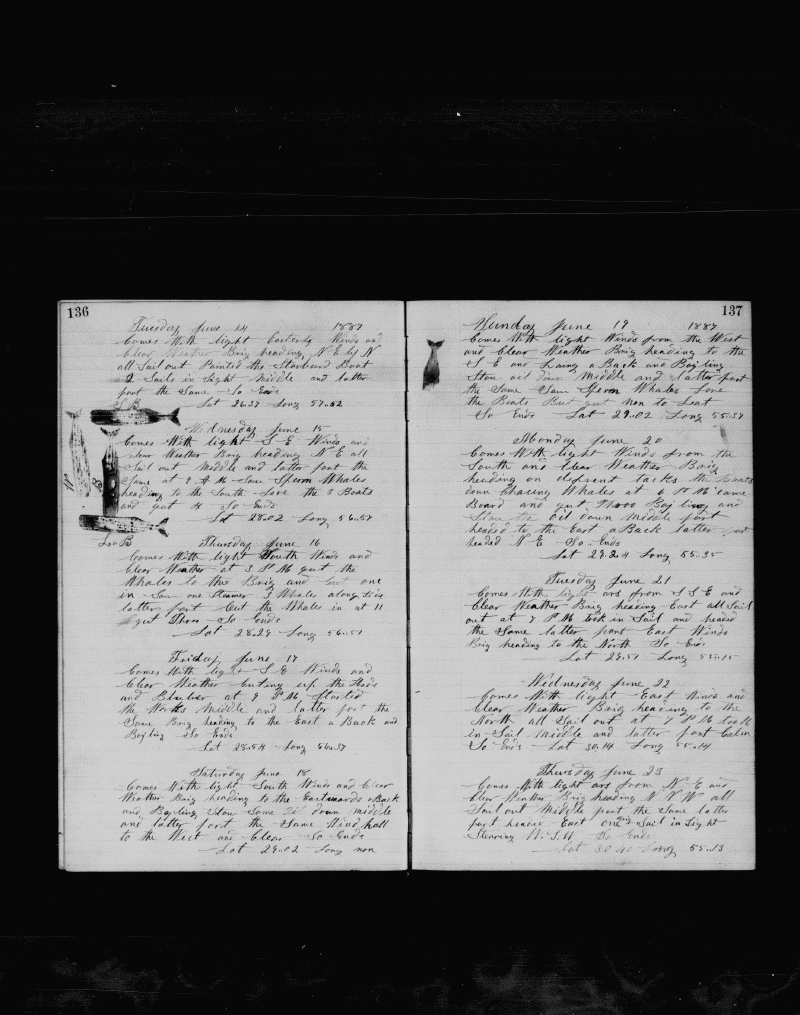 136
Tuesday June 14 1887
Comes With light Easterly Winds and
Clear Weather Brig heading N E by N
all Sail out Painted the Starboard Boat
2 Sails in Sight Middle and latter
part the Same So Ends
Lat 26..37 Long 57..52
S B
Wednesday June 15
Comes With light S E Winds and
Clear Weather Brig heading N E all
Sail out Middle and latter part the
Same at 9 A M Saw Sperm Whales
heading to the South Lore the 3 Boats
and gut 4 So Ends
Lat 28..02 Long 56..57
W
B
B
Thursday June 16
Comes With light South Winds and
Clear Weather at 3 P M gut the
Whales to the Brig and Cut one
in Saw one Steamer 3 Whales along Side
latter part Cut the Whales in at 11
gut Throo So Ends
Lat 28.29 Long 56..51
Friday June 17
Comes With light S E Winds and
Clear Weather Cuting up the Heds
and Bluber at 9 P M Started
the Works Middle and latter part the
Same Brig heading to the East a Back and
Boyling So Ends
Lat 28.54 Long 56..37
Saturday June 18
Comes With light South Winds and Clear
Weather Brig heading to the Eastwards a Back
and Boyling Stow Some Oil down middle
and latter part the Same Wind hall
to the West and Clear So Ends
Lat 29..02 Long non
137
Sunday June 19 1887
Comes With light Winds from the West
and Clear Weather Brig heading to the
S E and Laing a Back and Boyling
Stow oil down Middle and latter part
the Same Saw Sperm Whales Lore
the Boats But gut non to Leat
So Ends Lat 29.02 Long 55.37
Monday June 20
Comes With light Winds from the
South and Clear Weather Brig
heading on diferent tacks the Boats
down Chasing Whales at 6 P M Came
Board and gut Throo Boyling and
Stow the oil down Middle part
heded to the East a Back latter part
heded N E So Ends
Lat 29.24 Long 55.35
Tuesday June 21
Comes With light ars from S S E and
Clear Weather Brig heading East all Sail
out at 7 P M took in Sail and heded
the Same latter part East Winds
Brig heading to the North So Ends
Lat 29.51 Long 55..15
Wednesday June 22
Comes With light East Winds and
Clear Weather Brig heading to the
North all Sail out at 7 P M took
in Sail Middle and latter part Calm
So Ends Lat 30.14 Long 55.14
Thursday June 23
Comes With light ars from N E and
Clear Weather Brig heading N N W all
Sail out Middle part the Same latter
part heded East one Sail in Sight
Stearing W.S.W So Ends
Lat 30.40 Long 55.13